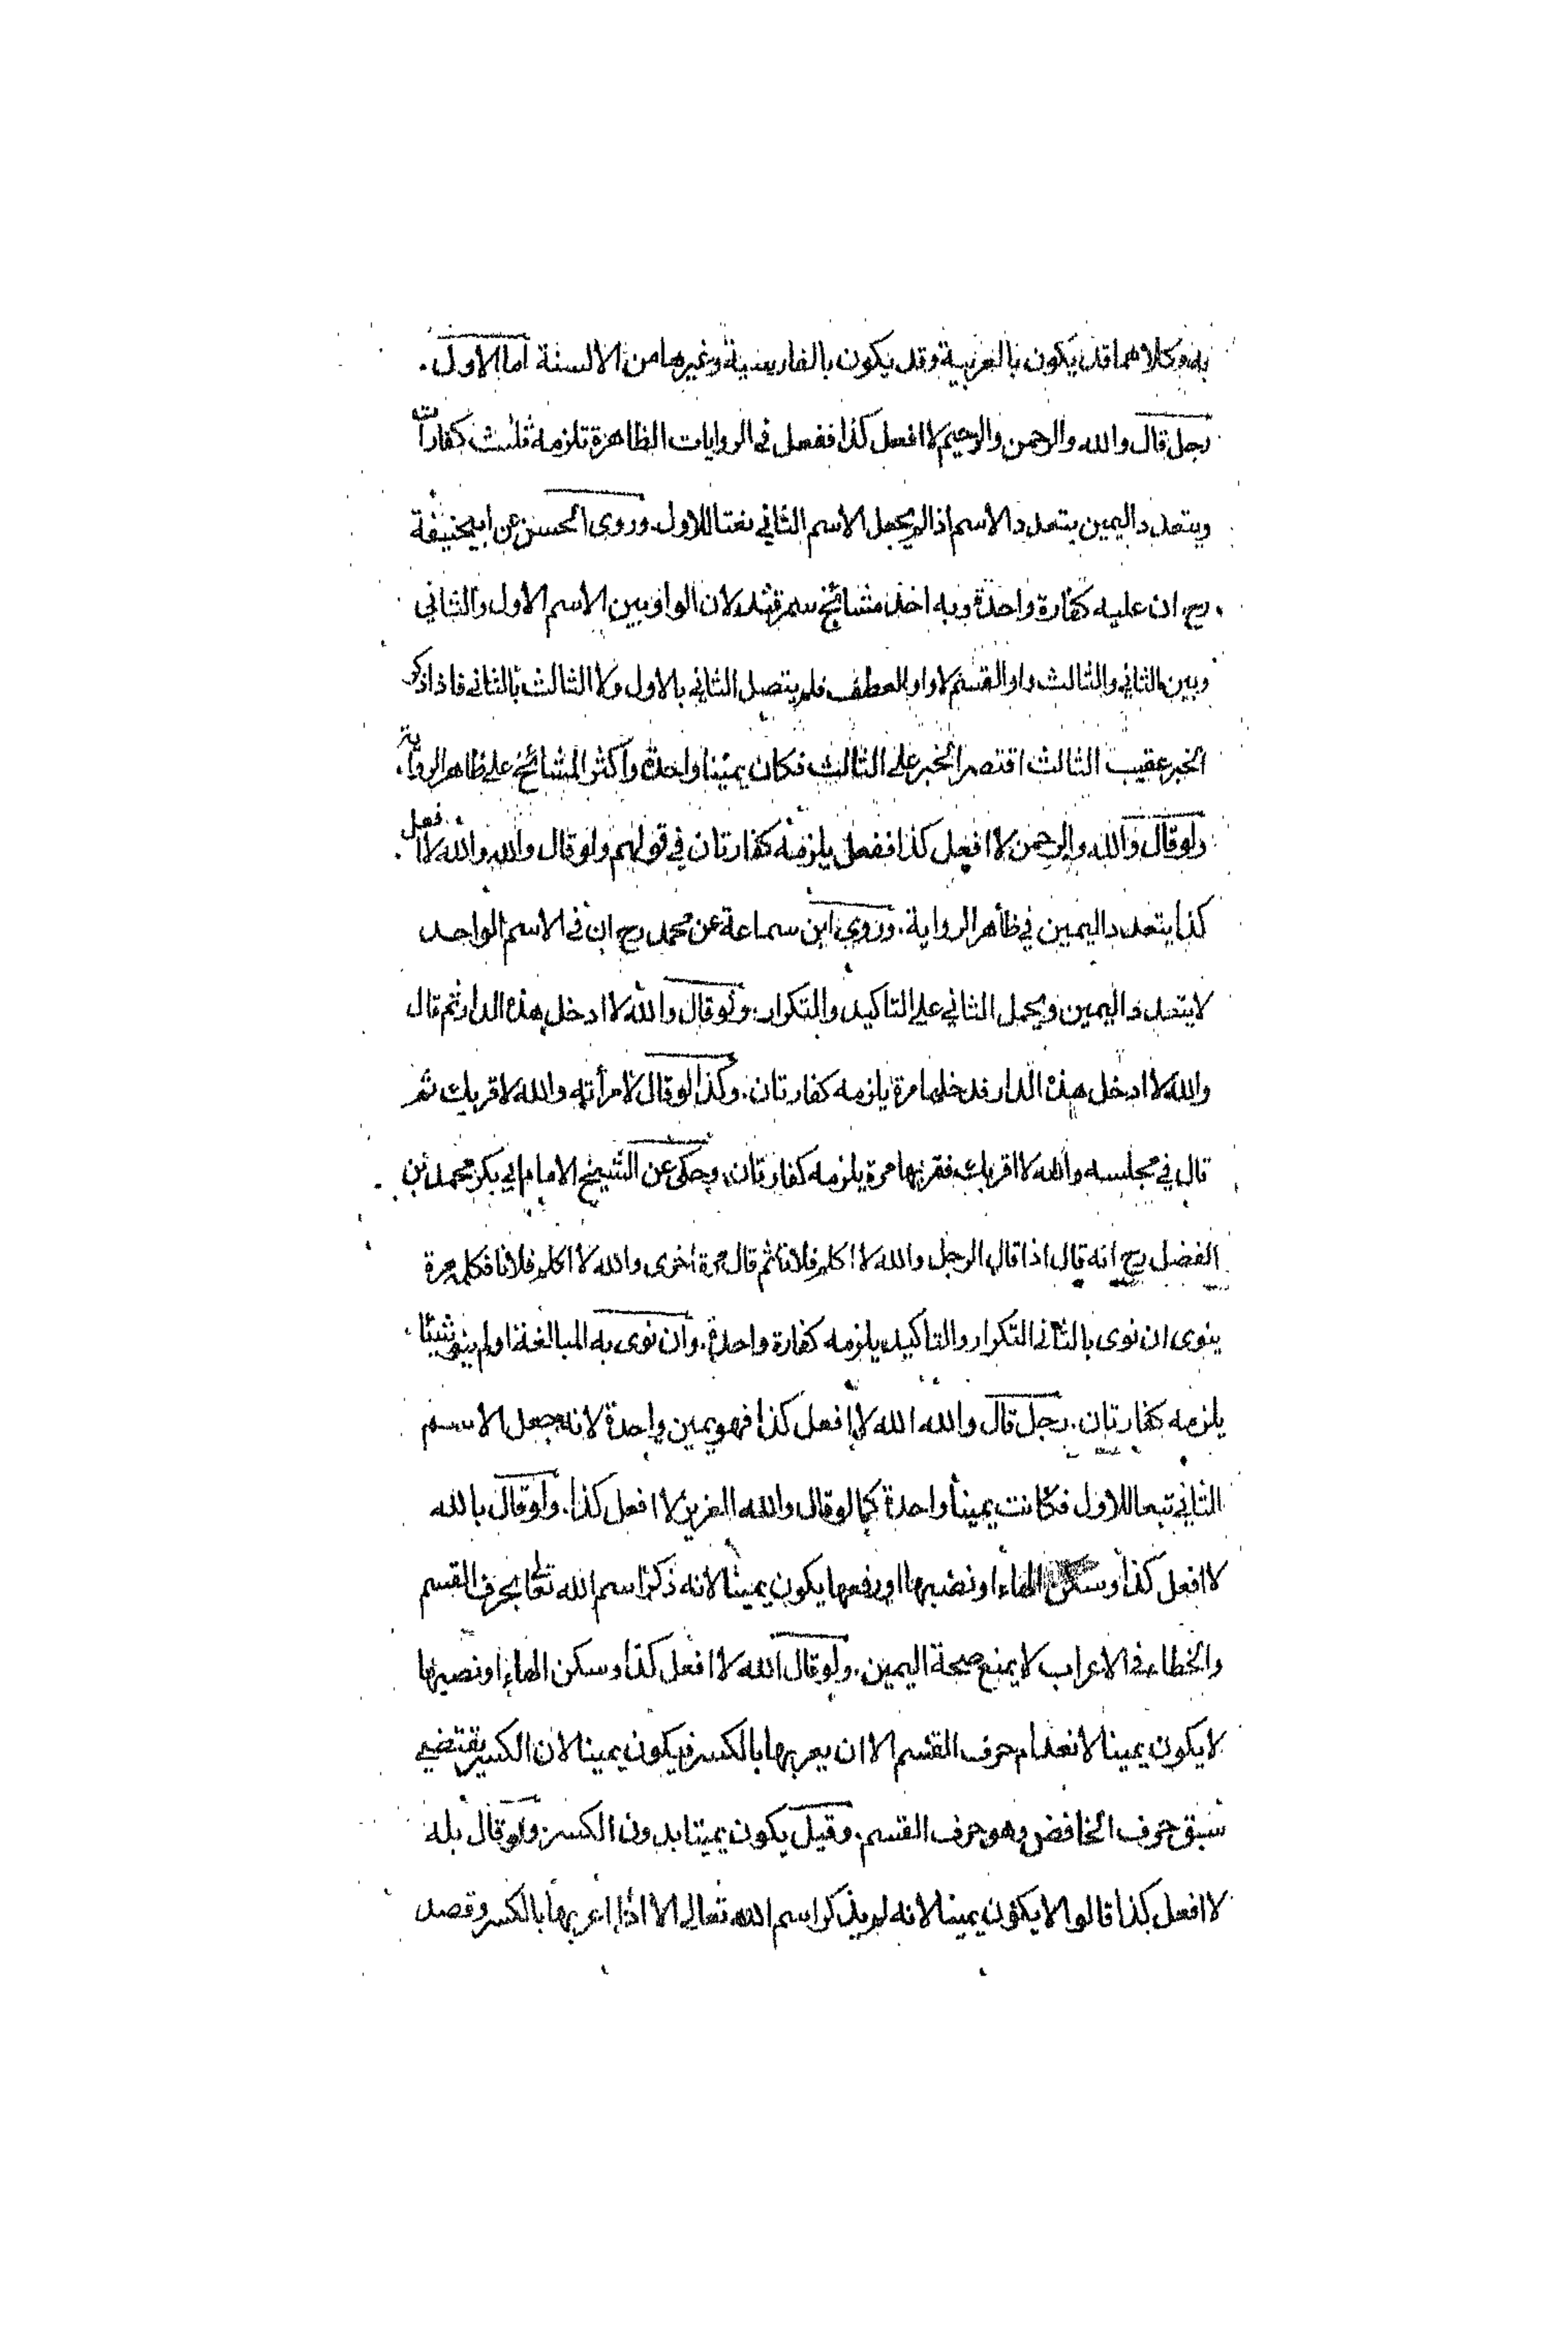 به وكلاهما قد يكون بالعربية وقد يكون بالفارسية وغيرها من الالسنة اما الاول .
رجل قال والله والرحمن والرحيم لا افعل كذا ففعل فى الروايات الظاهرة تلزمه ثلث كفارات
ويتعدد اليمين بتعدد الاسم اذا لم يجعل الاسم الثاني نعتا للاول وروى الحسن عن ابيحنيفة
رح ان عليه كفارة واحدة وبه اخذ مشائخ سمرقند لان الواو بين الاسم الاول والثاني
وبين الثاني والثالث واو القسم لا واو العطف فلم يتصل الثاني بالاول ولا الثالث بالثاني فاذا ذكر
الخبر عقيب الثالث اقتصر الخبر على الثالث فكان يمينا واحدة واكثر المشائخ على ظاهر الرواية .
ولو قال والله والرحمن لا افعل كذا ففعل يلزمه كفارتان في قولهم ولو قال والله والله لا افعل
كذا يتعدد اليمين في ظاهر الرواية . وروى ابن سماعة عن محمد رح ان فى الاسم الواحد
لا يتعدد اليمين ويحمل الثاني على التاكيد والتكرار . ولو قال والله لا ادخل هذه الدار ثم قال
والله لا ادخل هذه الدار فدخلها مرة يلزمه كفارتان . وكذا لو قال لامرأته والله لا قربك ثم
قال في مجلسه والله لا اقربك فقربها مرة يلزمه كفارتان . وحكى عن الشيخ الامام ابي بكر محمد بن
الفضل رح انه قال اذا قال الرجل والله لا اكلم فلانا ثم قال مرة اخرى والله لا اكلم فلانا فكلم مرة
ينوى ان نوى بالثانى التكرار والتاكيد يلزمه كفارة واحدة . وان نوى به المبالغة او لم ينو شيئا
يلزمه كفارتان . رجل قال والله الله لا افعل كذا فهو يمين واحدة لانه جعل الاسم
الثاني تبعا للاول فكانت يمينا واحدة كما لو قال والله العزيز لا افعل كذا . ولو قال بالله
لا افعل كذا وسكن الهاء او نصبها او رفعها يكون يمينا لانه ذكر اسم الله تعا بحرف القسم
والخطاء في الاعراب لا يمنع صحة اليمين . ولو قال الله لا افعل كذا وسكن الهاء او نصبها
لا يكون يمينا لانعدام حرف القسم الا ان يعربها بالكسر فيكون يمينا لان الكسر يقتضي
سبق حرف الخافض وهو حرف القسم . وقيل يكون يمينا بدون الكسر ولو قال بله
لا افعل كذا قالوا لا يكون يمينا لانه لم يذكر اسم الله تعالى الا اذا اعربها بالكسر وقصد